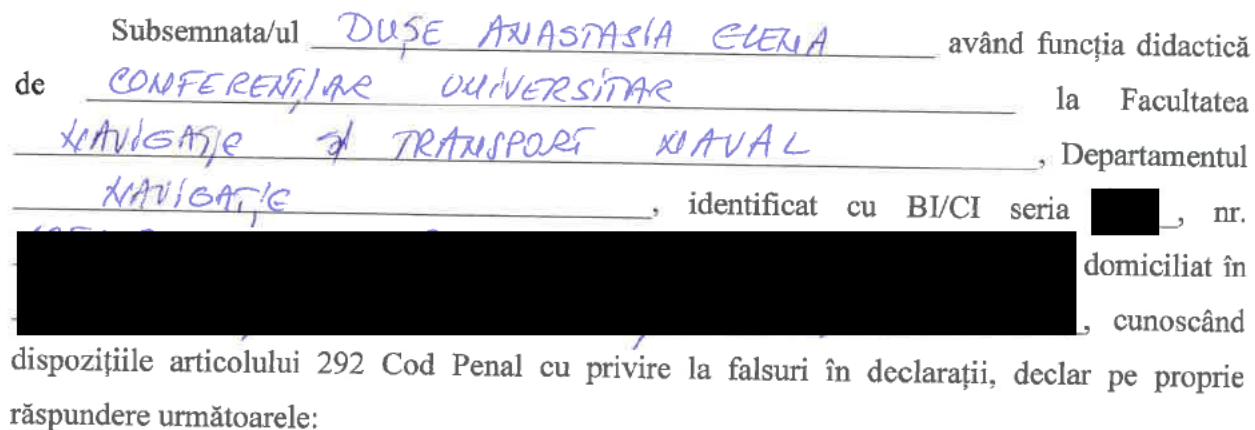 Subsemnata/ul DUȘE ANASTASIA ELENA având funcția didactică
de CONFERENȚIAR UNIVERSITAR la Facultatea
NAVIGAȚIE ȘI TRANSPORT NAVAL, Departamentul
NAVIGAȚIE, identificat cu BI/CI seria , nr.
domiciliat în
, cunoscând
dispozițiile articolului 292 Cod Penal cu privire la falsuri în declarații, declar pe proprie
răspundere următoarele: